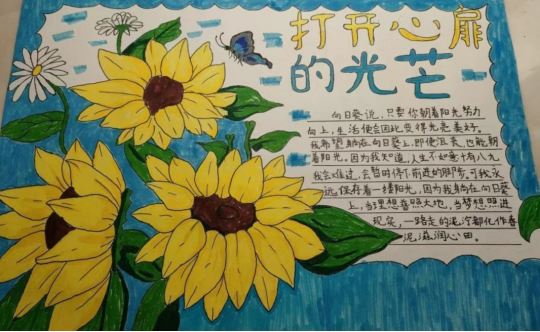 打开心扉
的光芒
向日葵说，只要你朝着阳光努力
向上，生活便会因此变得光亮美好。
我希望躺在向日葵上，即使沮丧，也能朝
着阳光。因为我知道，人生不如意十有八九
我会难过，会暂时停下前进的脚步，可我永
远保存着一缕阳光，因为我躺在向日葵
上，当理想喜照大地，当梦想照进
现实，一路走的泥泞都化作春
泥滋润心田。